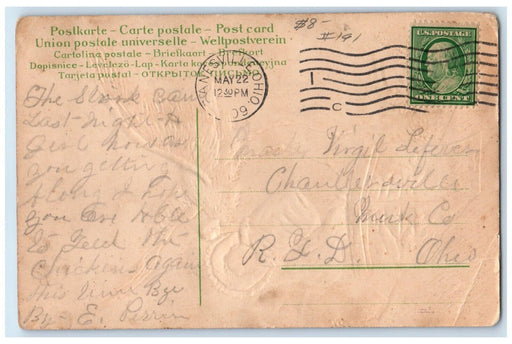 Postkarte – Carte postale – Post card
Union postale universelle – Weltpostverein
Cartolina postale – Briefkaart – Brefkort
Dopisnice – Levelezö-Lap – Karta
Tarjeta postal – ОТКРЫТОЕ
$8-
#141
ZANESVILLE, OHIO.
MAY 22
12 30 PM
09
1
C
U.S. POSTAGE
ONE CENT
The Stork Cam
Last night A
Girl how are
you getting
Along I hope
you are Able
to Feed the
Chickens Again
this time Bye
By- E. Perrin
Virgil Lefever
Chandlersville
Musk Co
R. F. D. Ohio